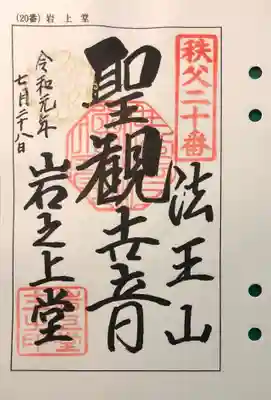 (20番) 岩上堂
秩父二十番
法王山
聖観世音
岩之上堂
令和元年
七月二十八日